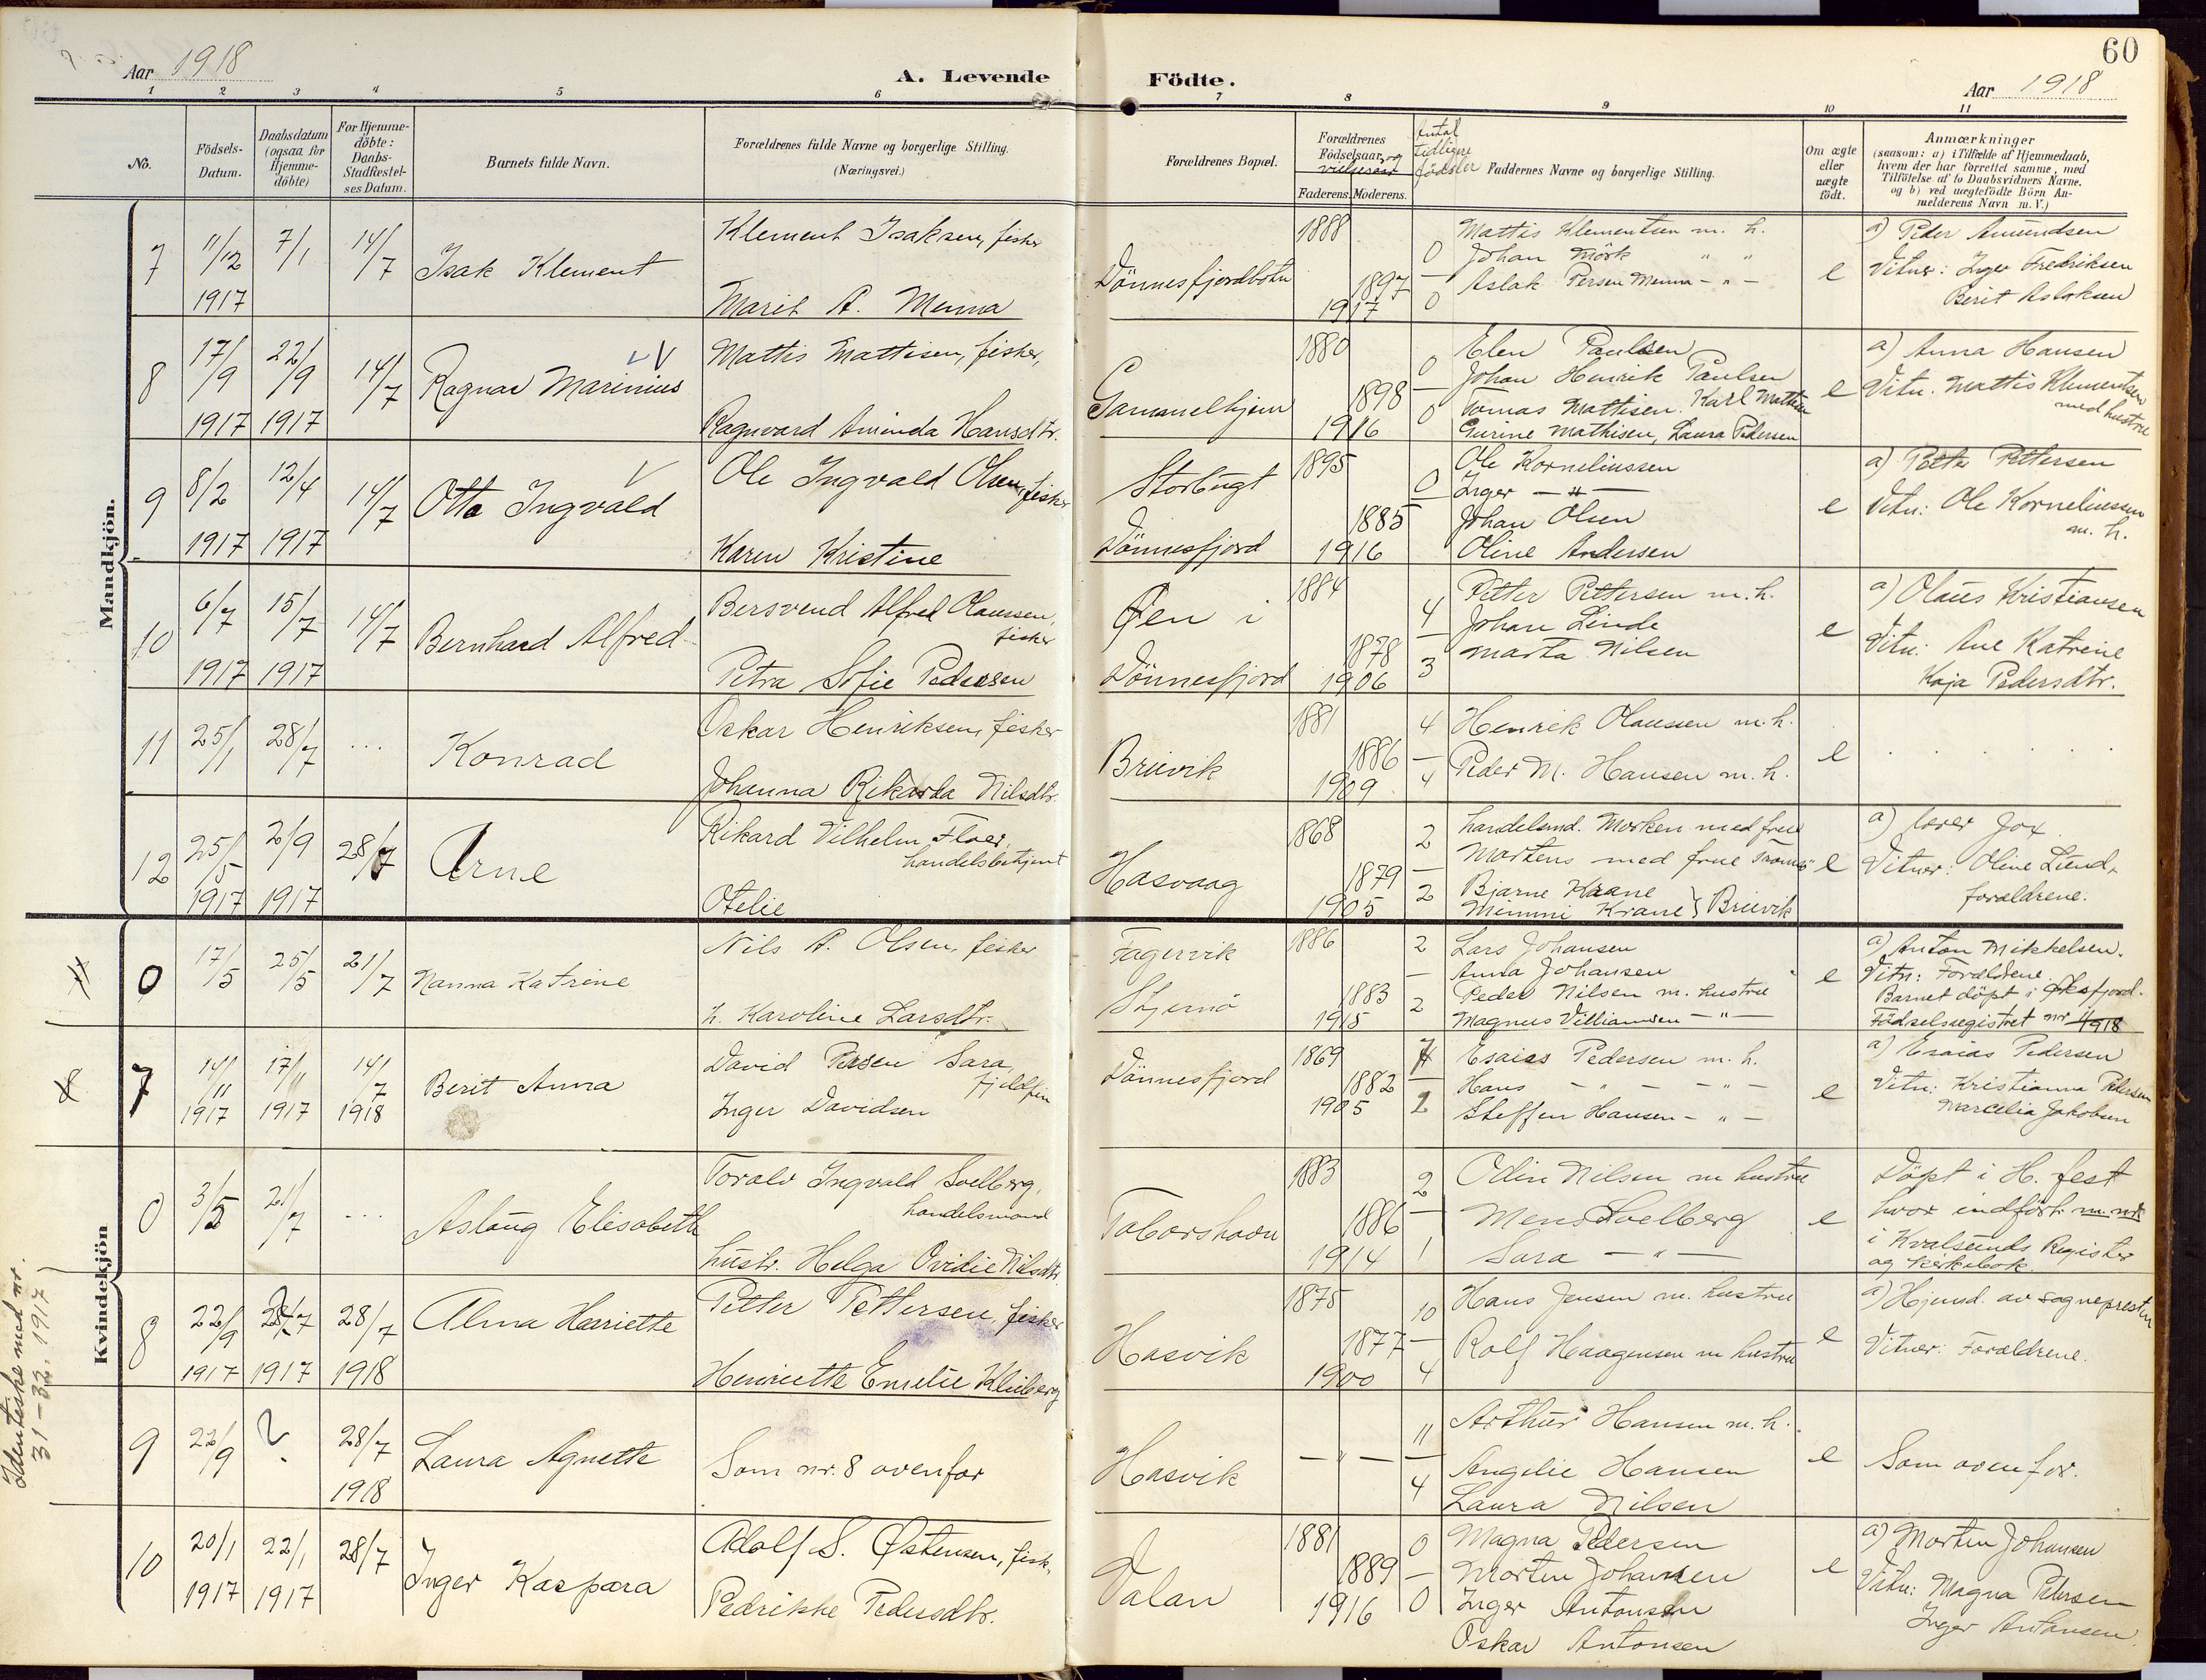 60
Aar 1918
A. Levende Födte.
Aar 1918
1 2 3 4 5 6 7 8 9 10 11
No.
Födsels-Datum.
Daabsdatum (ogsaa for Hjemme-döbte)
For Hjemme-döbte: Daabs-Stadfæstel-ses Datum.
Barnets fulde Navn.
Forældrenes fulde Navne og borgerlige Stilling.
(Næringsvei.)
Forældrenes Bopæl.
Forældrenes Födselsaar, og vielsesaar
Faderens. Moderens.
Antal tidligere födsler
Faddernes Navne og borgerlige Stilling.
Om ægte eller uægte födt.
Anmærkninger
(saasom: a) i Tilfælde af Hjemmedaab,
hvem der har forrettet samme, med
Tilföielse af to Daabsvidners Navne.
og b) ved uægtefödte Börn An-
melderens Navn m. V.)
Mandkjön.
7 11/12 1917 7/1 14/7 Isak Klement
Klement Isaksen, fisker
Marit A. Menna
Dönnesfjordbotn 1888 1897 1917 0 — 0
Mattis Klementsen m. h.
Johan Mörk " "
Aslak Persen Menna - " -
e
a) Peder Amundsen
Vitner: Inger Fredriksen
Berit Aslaksen
8 17/9 1917 22/9 1917 14/7 Ragnar Marinius
Mattis Mattisen, fisker,
Ragnvard Aminda Hansdtr.
Gammelhjem 1880 1898 1916 0 — 0
Elen Paulsen
Johan Henrik Paulsen
Tomas Mattisen. Karl Mathisen
Gurine Mathisen, Laura Pedersen
e
a) Anna Hansen
Vitn. Mattis Klementsen
med hustru
9 8/2 1917 12/4 1917 14/7 Otto Ingvald
Ole Ingvald Olsen, fisker
Karen Kristine
Storbugt
Dönnesfjord 1895 1885 1916 0
Ole Korneliussen
Inger — " —
Johan Olsen
Oline Andersen
e
a) Petter Pettersen
Vitn: Ole Korneliussen
m. h.
10 6/7 1917 15/7 1917 14/7 Bernhard Alfred
Bersvend Alfred Olaussen,
fisker
Petra Sofie Pedersen
Øen i
Dönnesfjord 1884 1878 1906 4 — 3
Petter Pettersen m. h.
Johan Linde
Marta Nilsen
e
a) Olaus Kristiansen
Vitn: Ane Katrine
Kaja Pedersdtr.
11 25/1 28/7 ... Konrad
Oskar Henriksen, fisker
Johanna Rikarda Nilsdtr.
Brievik 1881 1886 1909 4 — 4
Henrik Olaussen m. h.
Peder M. Hansen m. h.
e
12 25/5 1917 2/9 1917 28/7 Arne
Rikard Vilhelm Floer,
handelsbetjent
Otelie
Hasvaag 1868 1879 1905 2 — 2
handelsmd. Morken med frue
Martens med frue Tromsö
Bjarne Krane
Mimmi Krane } Brievik
e
a) lærer Jox.
Vitner: Oline Lund,
forældrene.
Kvindekjön
0 17/5 25/5 21/7 Nanna Katrine
Nils A. Olsen, fisker
h. Karoline Larsdtr.
Fagervik
Stjernö 1886 1883 1915 2 — 2
Lars Johansen
Anna Johansen
Peder Nilsen m. hustru
Magnus Villiamsen — " —
e
a) Anton Mikkelsen.
Vitn: Forældrene.
Barnet döpt i Øksfjord.
Födselsregistret nr 11/918
8 7 14/11 1917 17/11 1917 14/7 1918 Berit Anna
David Persen Sara,
fjeldfin
Inger Davidsen
Dönnesfjord 1869 1882 1905
Esaias Pedersen m. h.
Hans - " - - " -
Steffen Hansen - " -
e
a) Esaias Pedersen
Vitn: Kristianna Pedersen
Marcelia Jakobsen
0 3/5 21/7 ... Aslaug Elisabeth
Toralv Ingvald Solberg,
handelsmand
hustr. Helga Ovidie Nilsdtr.
Taborshavn 1883 1886 1914 2 — 1
Odin Nilsen m hustru
Mens Soelberg
Sara — " —
e
Döpt i H. fest
hvor indfört m. nr.
i Kvalsunds Register
og kirkebok.
8 22/9 1917 28/7 1917 28/7 1918 Alma Harriette
Petter Pettersen, fisker
Henriette Emelie Klieberg
Hasvik 1875 1877 1900 10 — 4
Hans Jensen m. hustru
Rolf Haagensen m hustru
e
a) Hjemd. av sognepresten
Vitner: Forældrene.
9 22/9 ? 28/7 1918 Laura Agnethe
Som nr. 8 ovenfor
Hasvik — " — 11 — 4
Arthur Hansen m. h.
Angelie Hansen
Laura Nilsen
e
Som ovenfor.
10 20/1 1917 22/1 1917 28/7 Inger Kaspara
Adolf S. Østensen, fisk.
Pedrikke Pedersdtr.
Valan 1881 1889 1916 0 — 0
Magna Pedersen
Morten Johansen
Inger Antonsen
Oskar Antonsen
e
a) Morten Johansen
Vitn: Magna Pedersen
Inger Antonsen.
Identiske med nr.
31 - 32, 1917